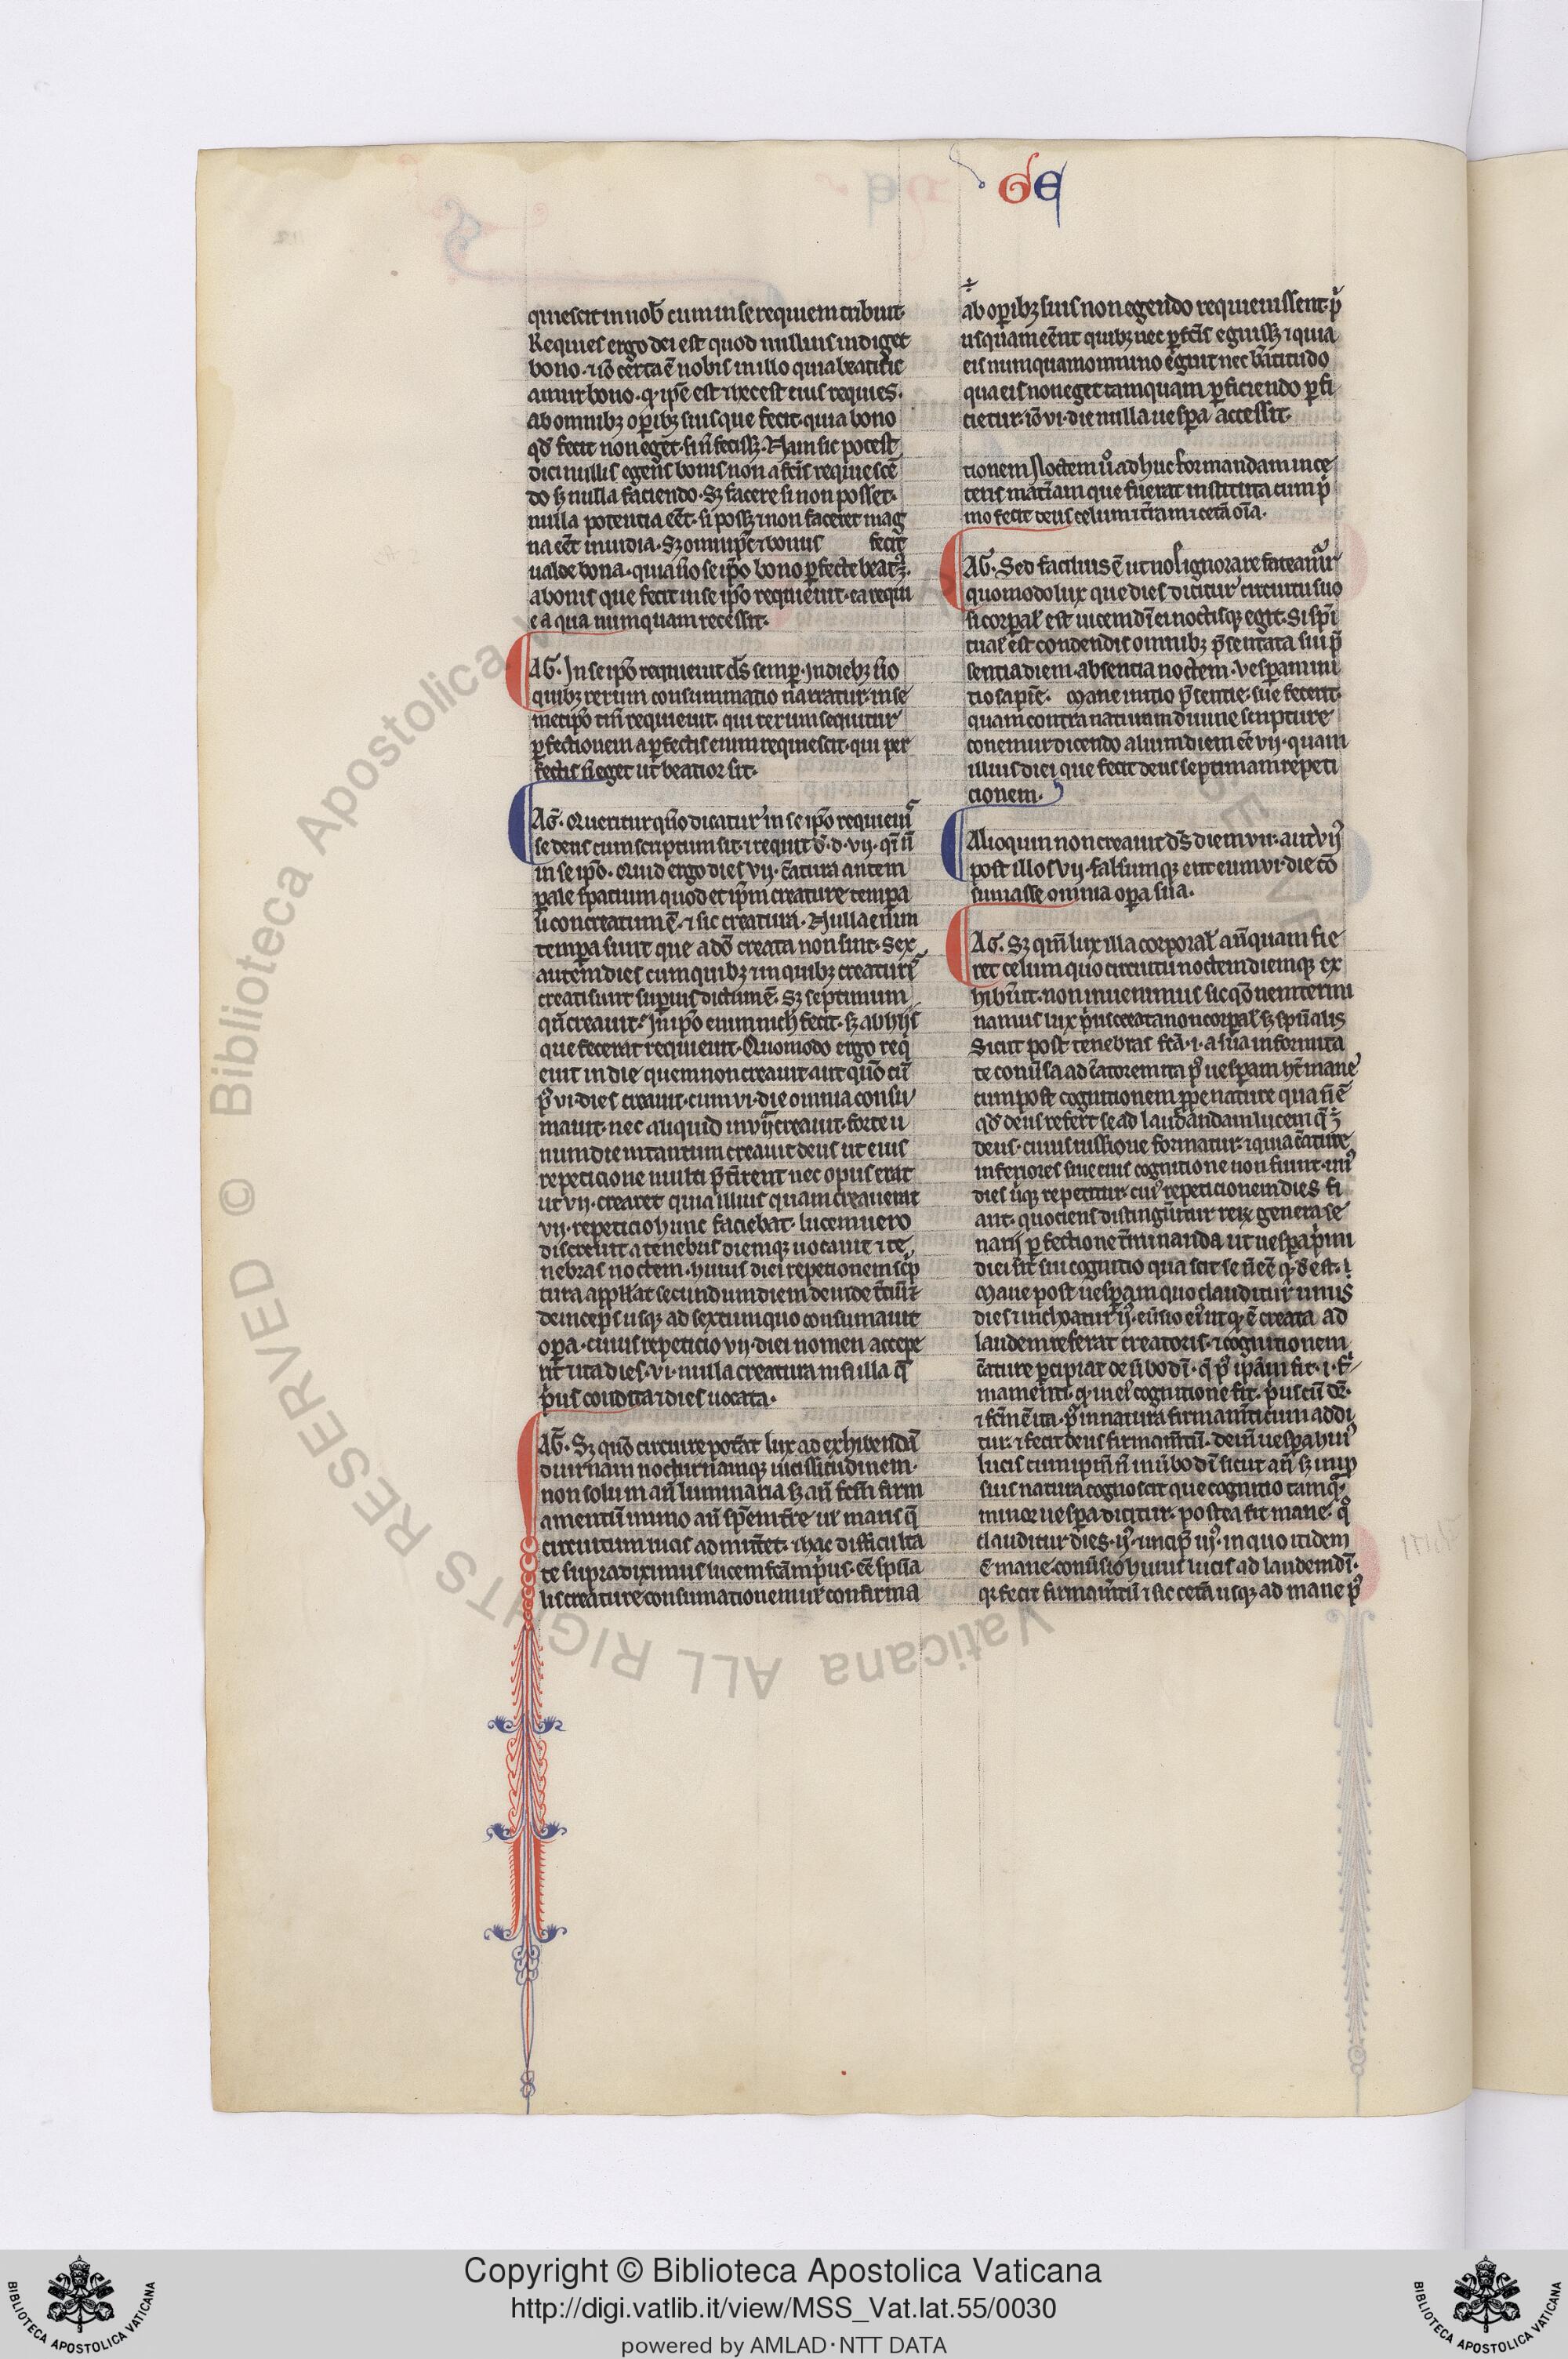 GE
quiescit in nob̄ cum in se requiem tribuit·
Requies ergo dei est quod nullius indiget
bono· ⁊ iō cērta ē nobis in illo quia beatific
amur bono· ipē est ⁊ hec est eius requies·
ab omnibꝫ oꝑibꝫ suis que fecit· quia bono
qđ fecit non eget· fecissꝫ· Nam sic potest
dici nullis egens bonis non a fc̄is requiescē
do sꝫ nulla faciendo· Sꝫ facere si non posset·
nulla potentia eēt· si possꝫ ⁊ non faceret mag
na eēt inuidia· Sꝫ omnipc̄ ⁊ bonus fecit
ualde bona· quia ūo se ipō bono ꝑfecte beatꝫ·
a bonis que fecit in se ipō requieuit· ea requi
e a qua numquam recessit·
AG̅· In se ipō requieuit dс̄ semꝑ· In diebꝫ ūo
quibꝫ rerum consummatio narratur· in se
metipō tm̄ requieuit· qui rerum sequitur
ꝑfectionem a ꝑfectis enim requiescit· qui per
fectis n̄ eget ut beatior sit·
AG̅· Queritur quō dicatur in se ipō requieui
se deus cum scriptum sit· ⁊ requit d̄· d· vij· n̄
in se ipō· Quid ergo dies vij· c̄atura an tem
ꝑale spatium quod et ipm creature tempa
li concreatum ē· ⁊ sic creatura· Nulla enim
tempa sunt que a dō creata non sint· Sex
autem dies cum quibꝫ in quibꝫ creature
creati sunt suꝑius dictum ē· Sꝫ septimum
qn̄ creauit· In ipō enim nich̄ fecit· sꝫ ab hijs
que fecerat requieuit· Quomodo ergo req
euit in die quem non creauit aut quō cū
p̄ vi· dies creauit· cum vi· die omnia consu
mauit· nec aliquid in vij creauit· forte u
num diem tantum creauit deus ut eius
repeticione multi p̄t̄irent nec opus erat
ut vij· crearet quia illius quam creauerat
vij· repeticio hunc faciebat· lucem uero
discreuit a tenebris diemqꝫ uocauit ⁊ te
nebras noctem· huius diei repetionem sc̄p
tura appllat secundum diem deinde
deinceps usqꝫ ad sextum quo consumauit
oꝑa· cuius repeticio vij· diei nomen accepe
rit ⁊ ita dies· vi· nulla creatura nisi illa q̄
pus condita ⁊ dies uocata·
AG̅· Sꝫ quō circuire pot̄at lux ad exhibendā
diurnam nocturnamqꝫ uicissitudinem·
non solum an̄ luminaria sꝫ an̄ fc̄m firm
amentū immo an̄ spēm t̄re ul̄ maris q̄
circuitum lucis admittet· ⁊ hac difficulta
te supra diximus lucem fc̄am p̄us· eē spūa
lis creature consumationem ur confirma
ab oꝑibꝫ suis non egendo requieuissent· p̄
usquam eēnt quibꝫ nec ꝑfc̄is eguissꝫ ⁊ quia
eis numquam omnino eguit nec b̄atitudo
qua eis non eget tamquam ꝑficiendo ꝑfi
cietur· iō vi· die nulla uesꝑa accessit·
tionem Noctem ū ad huc formandam in ce
teris mat̄iam que fuerat instituta cum p̄
mo fecit deus celum ⁊ t̄ram ⁊ cet̄a oīa·
AG̅· Sed facilius ē ut nos ignorare fateamur
quomodo lux que dies dicitur circuitu suo
si corꝑal̄ est uicem dī ei noctisqꝫ egit· Si sp̄i
tual̄ est condendis omnibꝫ p̄sentata sui p̄
sentia diem· absentia noctem· Vesꝑam ini
tio Mane initio p̄sentie sue fecerit·
quam contra naturam diuine scripture
conemur dicendo alium diem eē vij· quam
illius diei que fecit deus septimam repeti
cionem·
Alioquin non creauit dс̄ diem vii· aut vij
post illos vij· falsumqꝫ erit eum vi· die cō
sumasse omnia oꝑa sua·
AG̅· Sꝫ qm̄ lux illa corꝑoral̄ an̄quam fie
ret celum quo circuitu noctem diemqꝫ ex
hib̄uit· non inuenimus sic qō nem termi
namus lux p̄us creata non corꝑal̄ sꝫ spūalis
Sicut post tenebras fc̄a· i· a sua informita
te conūsa ad c̄atorem ita p̄ uesꝑam h̄t mane
cum post cognitionem ꝓprie nature qua n̄ ē
qđ deus refert se ad laudandam lucem
deus· cuius iussione formatur· ⁊ quia c̄ature
inferiores sine eius cognitione non fiunt
dies repetitur cui repeticionem dies fi
ant· quociens distinguūtur rerꝫ genera se
narij ꝑfectione t̄minanda ut uesꝑa primi
diei sit sui cognitio qua scit se n̄ eē qđ est·
Mane post uesꝑam quo clauditur unus
dies ⁊ inchoatur ij· ut qđ ē creata ad
laudem referat creatoris· ⁊ cognitionem
c̄ature ꝑcipiat de ūbo dī· p̄ ipam fit· i· fir
mamenti· in eius cognitione fit· p̄us cū
⁊ fc̄m ē ita· p̄ in natura firmam̄ti cum addi
tur· ⁊ fecit deus firmam̄tū· dein uesꝑa huius
lucis cum ipm n̄ in ūbo dī sicut an̄ sꝫ in ip̄
suis natura cognoscit que cognitio tamq̄
minor uesꝑa dicitur· postea fit mane· q̄
clauditur dies· ij· ⁊ incip̄ iij· in quo itidem
ē mane· conūsio huius lucis ad laudem dī·
qꝛ fecit firmam̄tū ⁊ sic cet̄a usqꝫ ad mane p̄
© Biblioteca Apostolica Vaticana ALL RIGHTS RESERVED
Copyright © Biblioteca Apostolica Vaticana
http://digi.vatlib.it/view/MSS_Vat.lat.55/0030
powered by AMLAD·NTT DATA
BIBLIOTECA APOSTOLICA VATICANA
BIBLIOTECA APOSTOLICA VATICANA